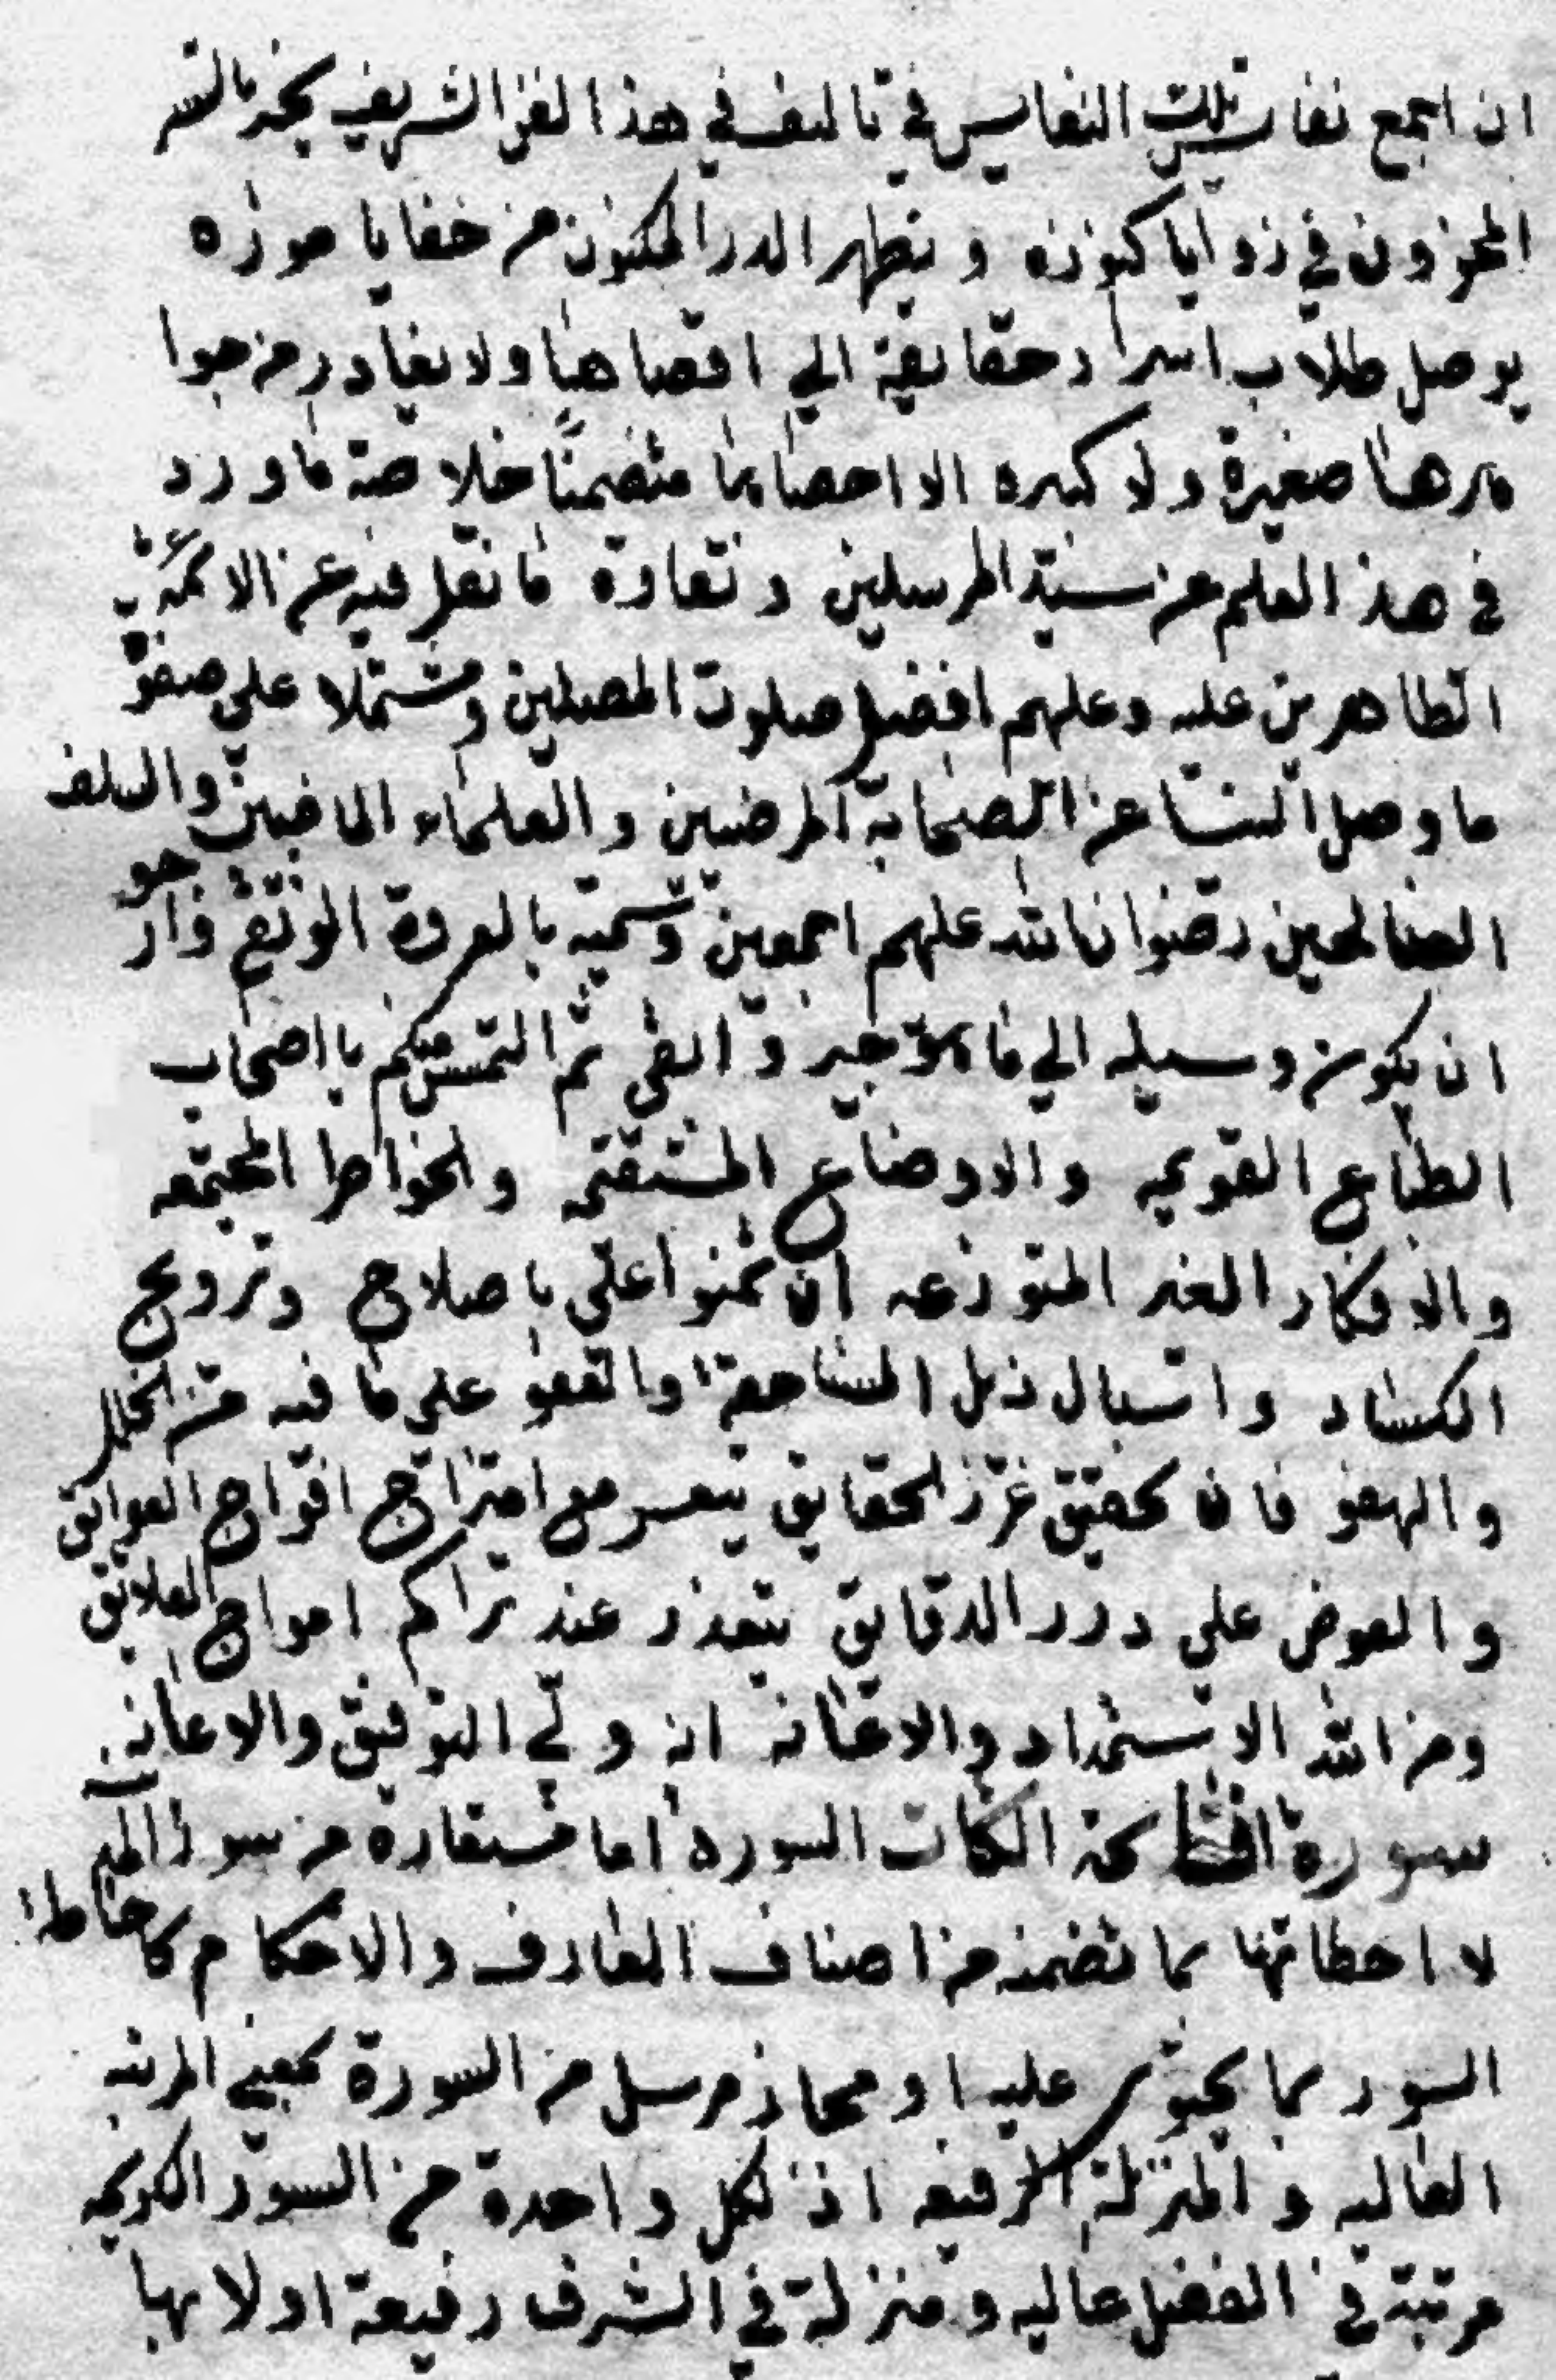 ان اجمع نفايس تلك النفايس في تاليف في هذا الفن الشريف يخبر بالسر
المخزون في زوايا كنوزه ويظهر الدر المكنون من خفايا موزه
يوصل طلاب اسرار حقايقه الي اقصاها ولا يغادر من جوا
هرها صغيرة ولا كبيره الا احصاها متضمنًا خلاصة ما ورد
في هذا العلم عن سيّد المرسلين ونقاوة ما نقل فيه عن الائمة
الطاهرين عليه وعليهم افضل صلوت المصلين ومشتملا على صفو
ما وصل الينا عن الصحابة المرضيين والعلماء الماضين والسلف
الصالحين رضوان الله عليهم اجمعين وسميته بالعروة الوثقى وارجو
ان يكون وسيله الي ما هو خير وابقى ثم التمس منكم يا اصحاب
الطباع القويمه والاوضاع المستقيمه والخواطر المجتمعه
والافكار الغير المتوزعه ان تمنوا علي باصلاح وترويج
الكساد واسبال ذيل المسامحة والعفو على ما فيه من الخلل
والهفو فان تحقيق غرر الحقايق يتعسر مع امتزاج افواج العوائق
والغوص علي درر الدقايق يتعذر عند تراكم امواج العلائق
ومن الله الاستمداد والاعانه انه ولي التوفيق والاعانه
سورة فاتحة الكتاب السوره اما مستعارة من سور المدينة
لاحاطتها بما تضمنه من اصناف المعارف والاحكام كاحاطة
السور بما يحتوي عليه او مجاز مرسل من السورة بمعني المرتبه
العاليه والمنزلة الرفيعه اذ لكل واحدة من السور الكريمه
مرتبة في الفضل عاليه ومنزلة في الشرف رفيعة اولا بها